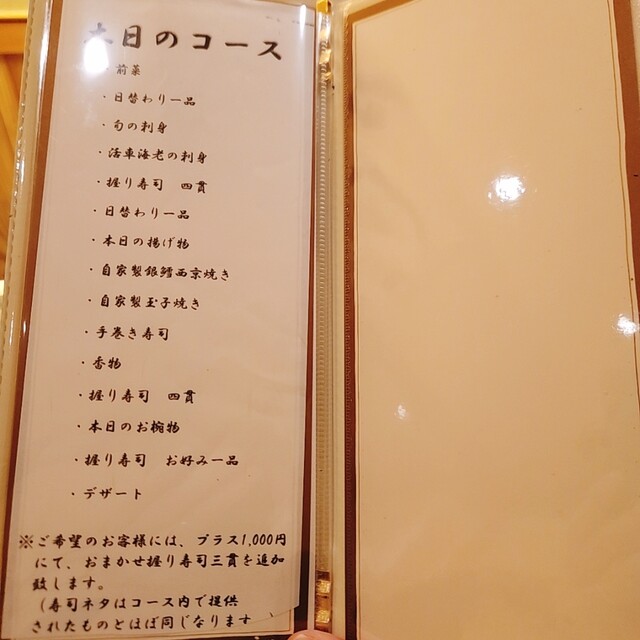 本日のコース
前菜
・日替わり一品
・旬の刺身
・活車海老の刺身
・握り寿司 四貫
・日替わり一品
・本日の揚げ物
・自家製銀鱈西京焼き
・自家製玉子焼き
・手巻き寿司
・香物
・握り寿司 四貫
・本日のお椀物
・握り寿司 お好み一品
・デザート
※ご希望のお客様には、プラス1,000円
にて、おまかせ握り寿司三貫を追加
致します。
（寿司ネタはコース内で提供
されたものとほぼ同じなります